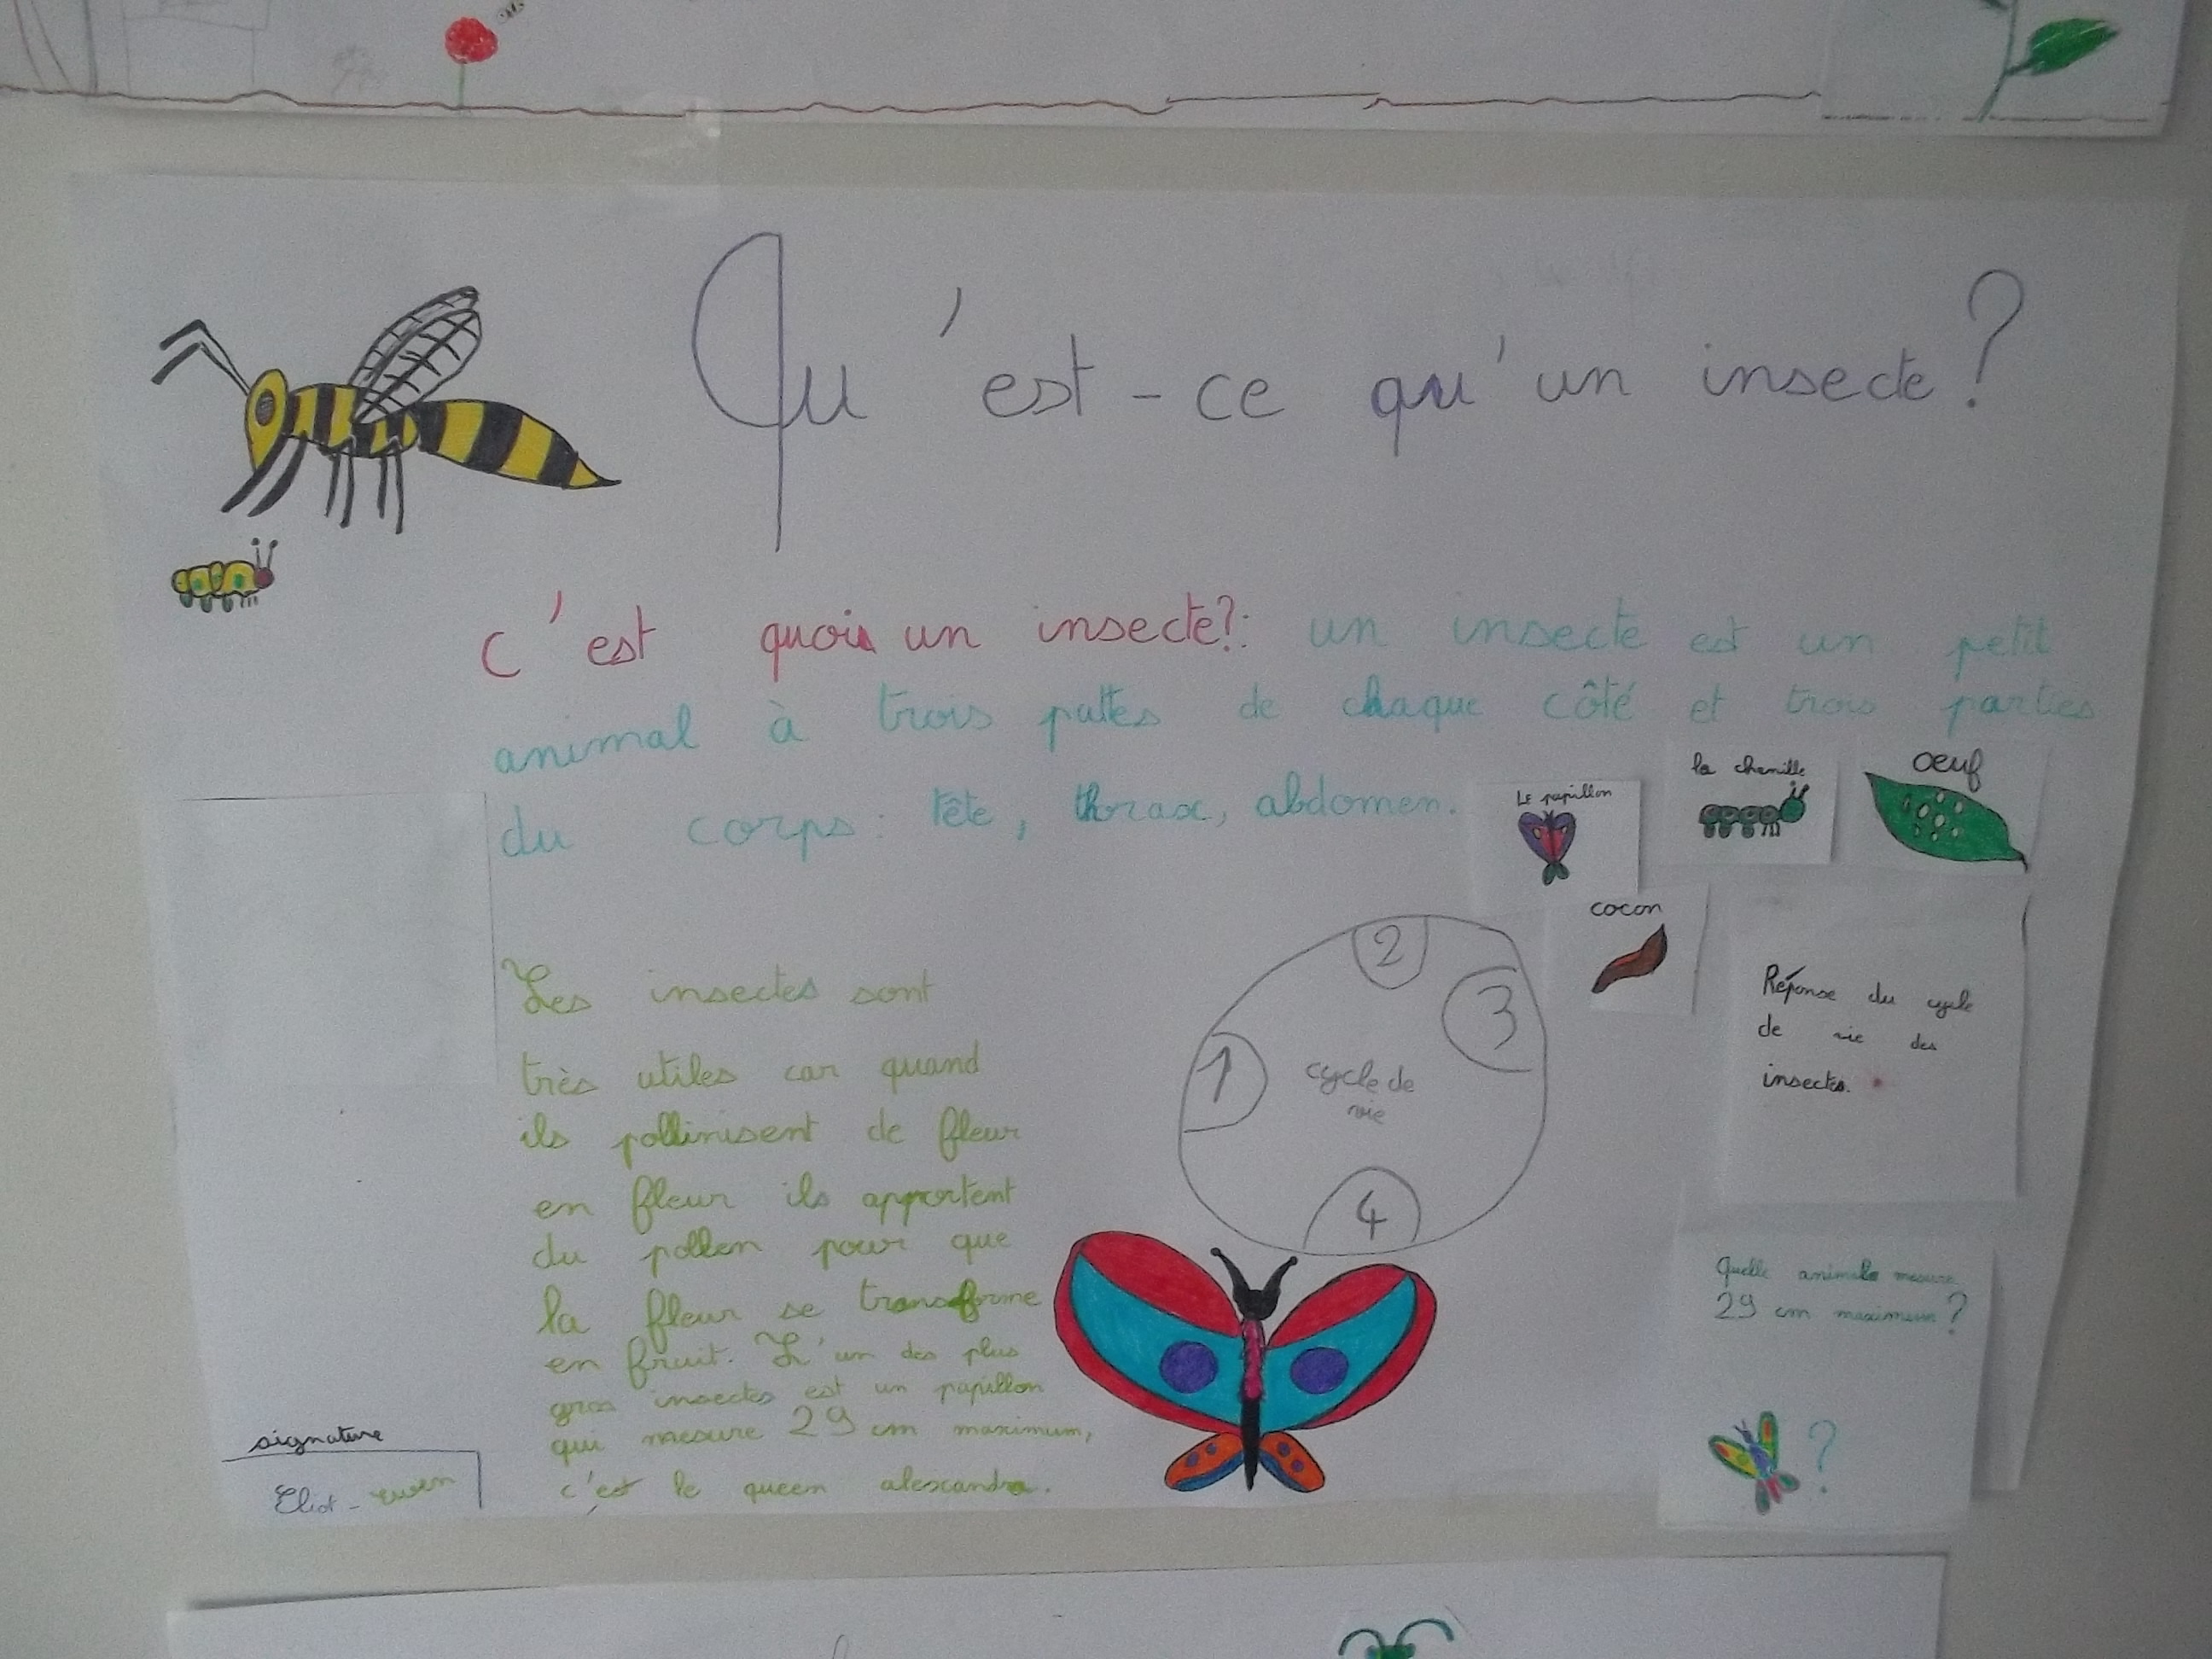 Qu'est-ce qu'un insecte?
c'est quois un insecte?: un insecte est un petit
animal à trois pattes de chaque côté et trois parties
du corps: tête, thorax, abdomen.
Le papillon
la chenille
oeuf
cocon
Les insectes sont
très utiles car quand
ils pollinisent de fleur
en fleur ils apportent
du pollen pour que
la fleur se transforme
en fruit. L'un des plus
gros insectes est un papillon
qui mesure 29 cm maximum,
c'est le queen alexandra.
2
3
1
cycle de
vie
4
Réponse du cycle
de vie des
insectes.
Quelle animale mesure
29 cm maximum?
?
signature
Eliot -